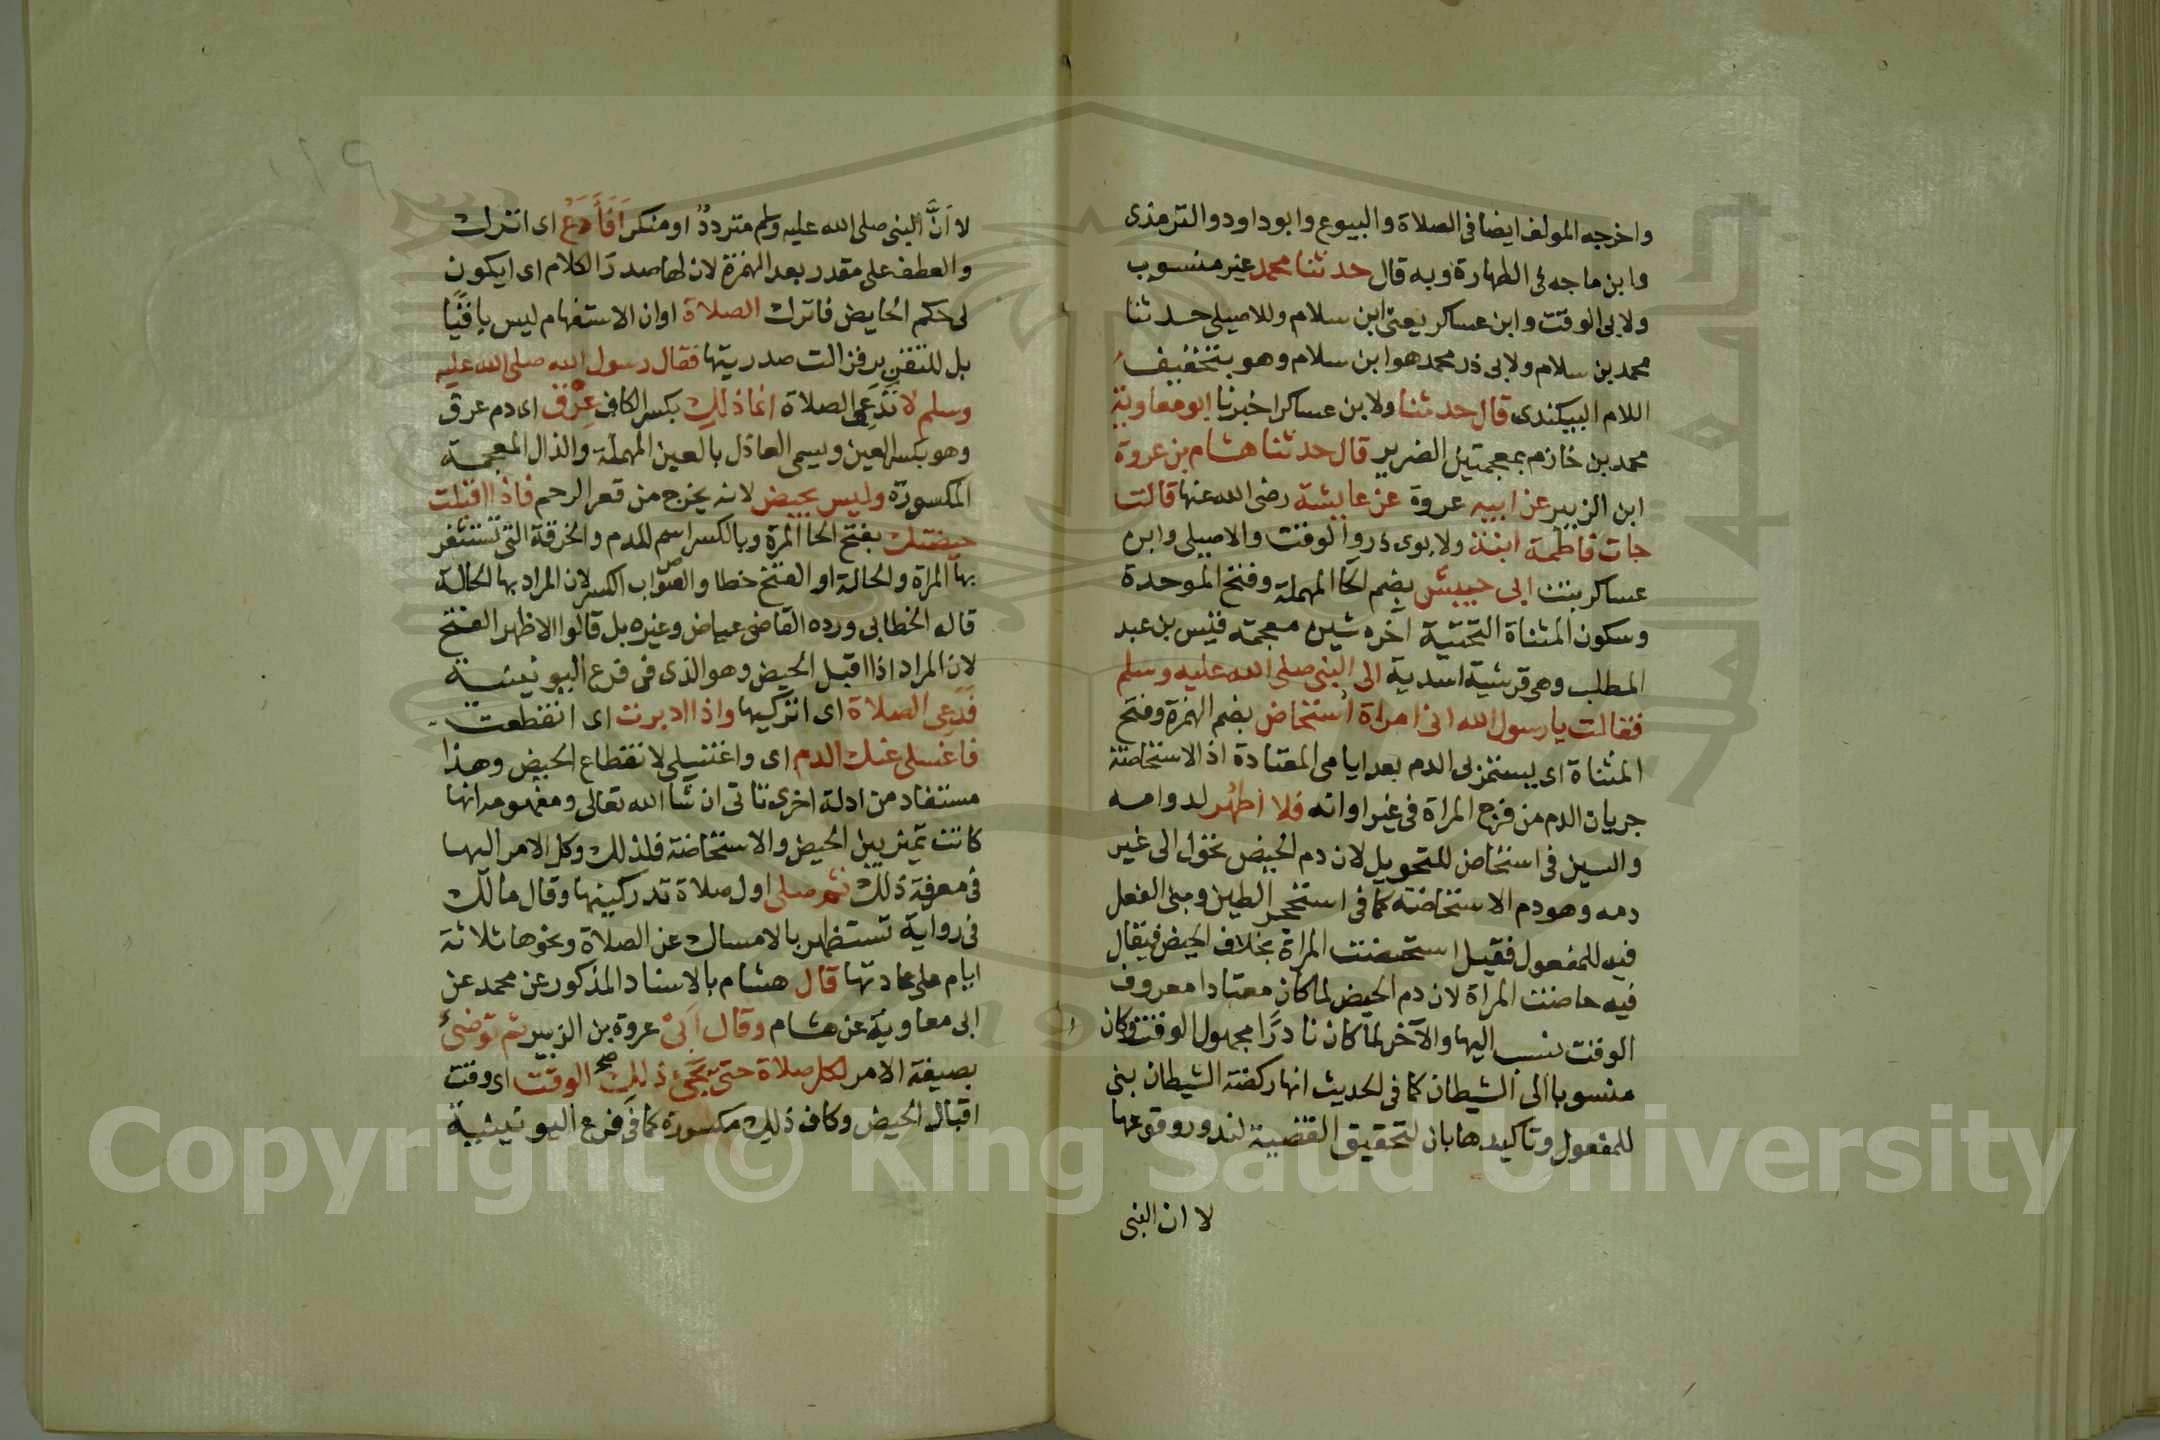 واخرجه المولف ايضا فى الصلاة والبيوع وابوداود والترمذى
وابن ماجه فى الطهارة وبه قال حدثنا محمد غير منسوب
ولابى الوقت وابن عساكر يعنى ابن سلام وللاصيلى حدثنا
محمد بن سلام ولابى ذر محمد هو ابن سلام وهو بتخفيف
اللام البيكندى قال حدثنا ولابن عساكر اخبرنا ابو معاوية
محمد بن خازم بمعجمتين الضرير قال حدثنا هشام بن عروة
ابن الزبير عن ابيه عروة عن عايشة رضى الله عنها قالت
جات فاطمة ابنة ولابوى ذر والوقت والاصيلى وابن
عساكر بنت ابى حبيش بضم الحا المهملة وفتح الموحدة
وسكون المثناة التحتية آخره شين معجمة قيس بن عبد
المطلب وهى قرشية اسدية الى النبى صلى الله عليه وسلم
فقالت يا رسول الله انى امراة استحاض بضم الهمزة وفتح
المثناة اى يستمر بى الدم بعد ايامى المعتادة اذ الاستحاضة
جريان الدم من فرج المراة فى غير اوانه فلا اطهر لدوامه
والسين فى استحاض للتحويل لان دم الحيض تحول الى غير
دمه وهو دم الاستحاضة كما فى استحجر الطين وبنى الفعل
فيه للمفعول فقيل استحيضت المراة بخلاف الحيض فيقال
فيه حاضت المراة لان دم الحيض لما كان معتادا معروف
الوقت نسب اليها والآخر لما كان نادرا مجهول الوقت وكان
منسوبا الى الشيطان كما فى الحديث انها ركضة الشيطان بنى
للمفعول وتاكيدها بان لتحقيق القضية لندور وقوعها
لا ان النبى
لا انَّ النبى صلى الله عليه وسلم متردد او منكر افأدع اى اترك
والعطف على مقدر بعد الهمزة لان لها صدر الكلام اى ايكون
لى حكم الحايض فاترك الصلاة او ان الاستفهام ليس باقيا
بل للتقرير فزالت صدريتها فقال رسول الله صلى الله عليه
وسلم لا تدعى الصلاة انما ذلكِ بكسر الكاف عِرق اى دم عرق
وهو بكسر العين ويسمى العاذل بالعين المهملة والذال المعجمة
المكسورة وليس بحيض لانه يخرج من قعر الرحم فاذا اقبلت
حيضتك بفتح الحا المرة وبالكسر اسم للدم والخرقة التى تستثفر
بها المراة والحالة او الفتح خطا والصواب الكسر لان المراد بها الحالة
قاله الخطابى ورده القاضى عياض وغيره بل قالوا الاظهر الفتح
لان المراد اذا اقبل الحيض وهو الذى فى فرع اليونينية
فدعى الصلاة اى اتركيها واذا ادبرت اى انقطعت
فاغسلى عنك الدم اى واغتسلى لانقطاع الحيض وهذا
مستفاد من ادلة اخرى تاتى ان شا الله تعالى ومفهومه انها
كانت تميز بين الحيض والاستحاضة فلذلك وكل الامر اليها
فى معرفة ذلك ثم صلى اول صلاة تدركينها وقال مالك
فى رواية تستظهر بالامساك عن الصلاة ونحوها ثلاثة
ايام على عادتها قال هشام بالاسناد المذكور عن محمد عن
ابى معاوية عن هشام وقال ابى عروة بن الزبير ثم توضئ
بصيغة الامر لكل صلاة حتى يجئ ذلك الوقت اى وقت
اقبال الحيض وكاف ذلك مكسورة كما فى فرع اليونينية
Copyright © King Saud University